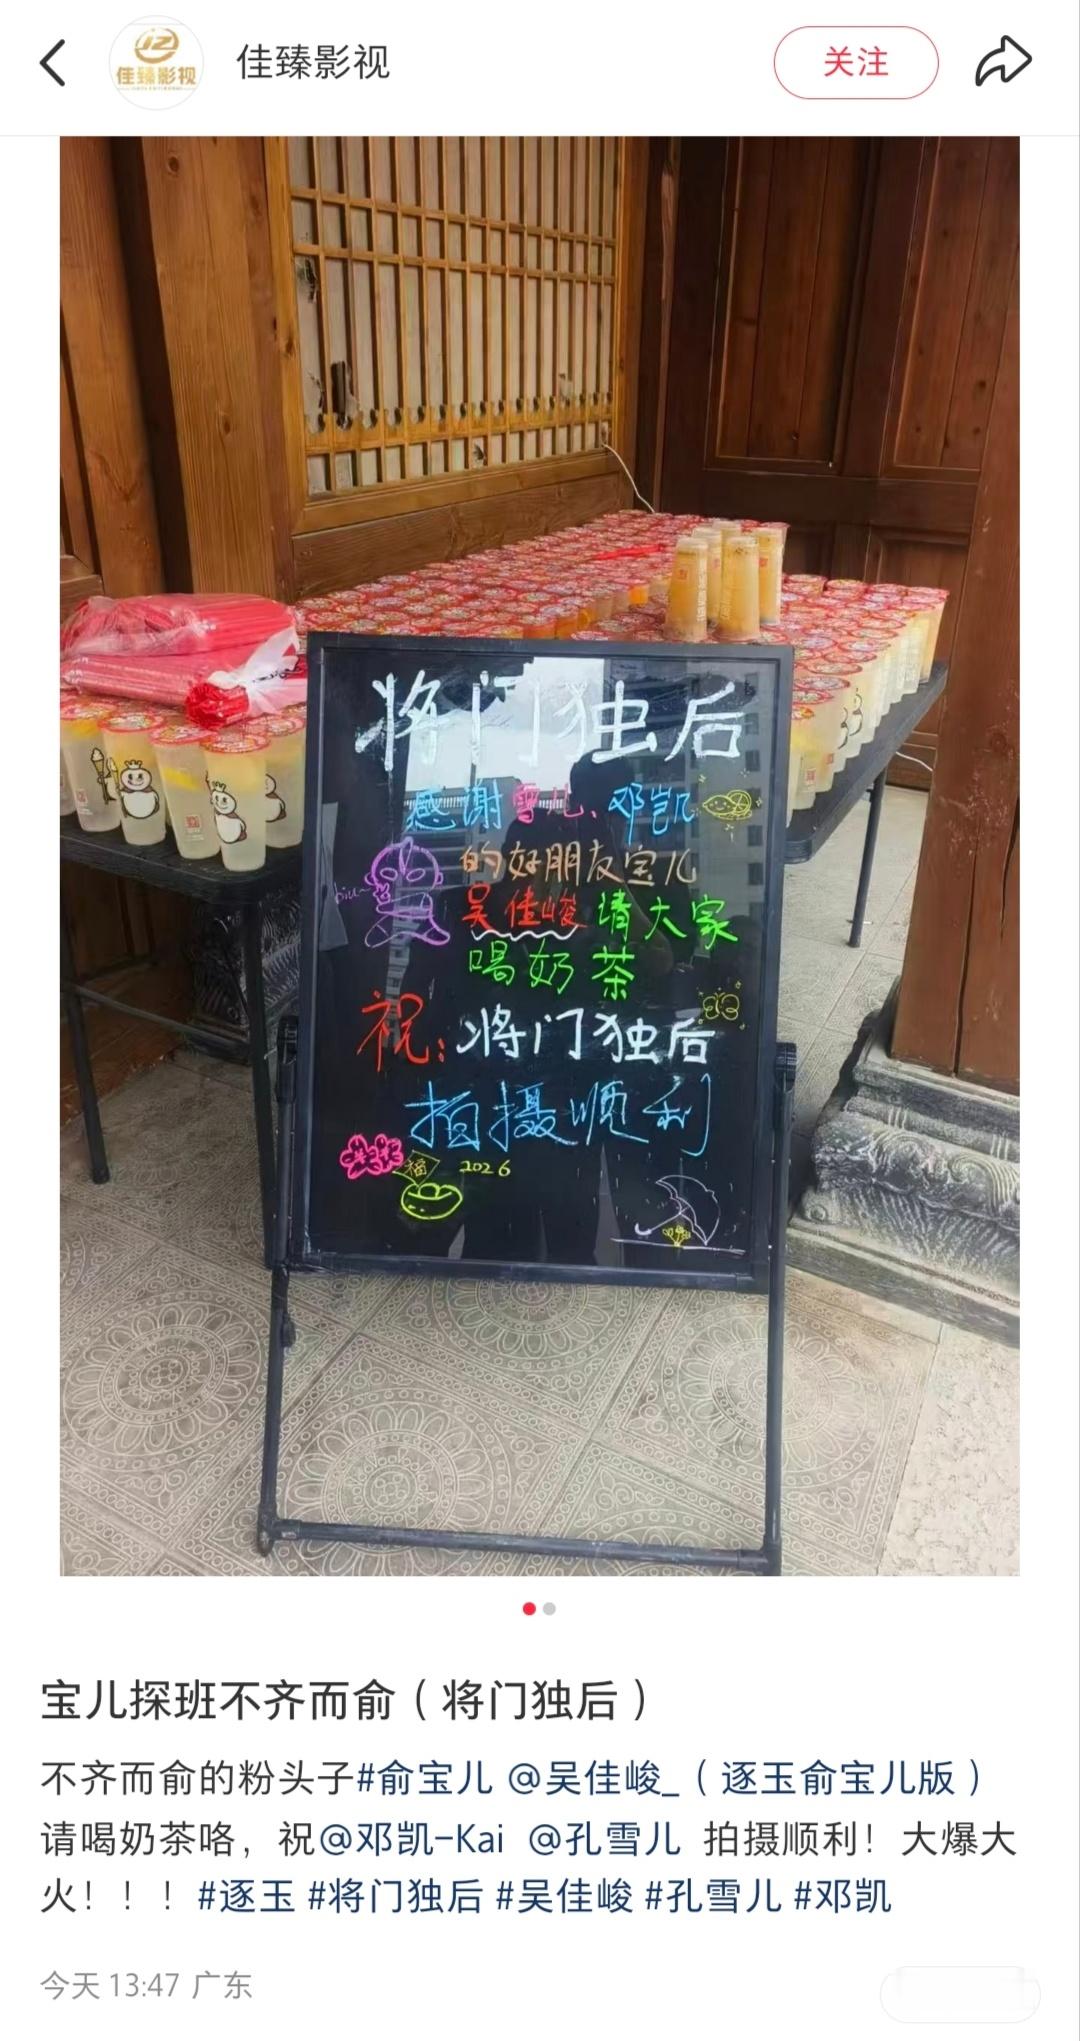 佳臻影视
佳臻影视
关注
将门独后
感谢雪儿、邓凯
的好朋友宝儿
biu~
吴佳峻请大家
喝奶茶
祝:将门独后
拍摄顺利
福 2026
宝儿探班不齐而俞（将门独后）
不齐而俞的粉头子#俞宝儿 @吴佳峻_（逐玉俞宝儿版）
请喝奶茶咯，祝@邓凯-Kai @孔雪儿 拍摄顺利！大爆大
火！！！#逐玉 #将门独后 #吴佳峻 #孔雪儿 #邓凯
今天 13:47 广东